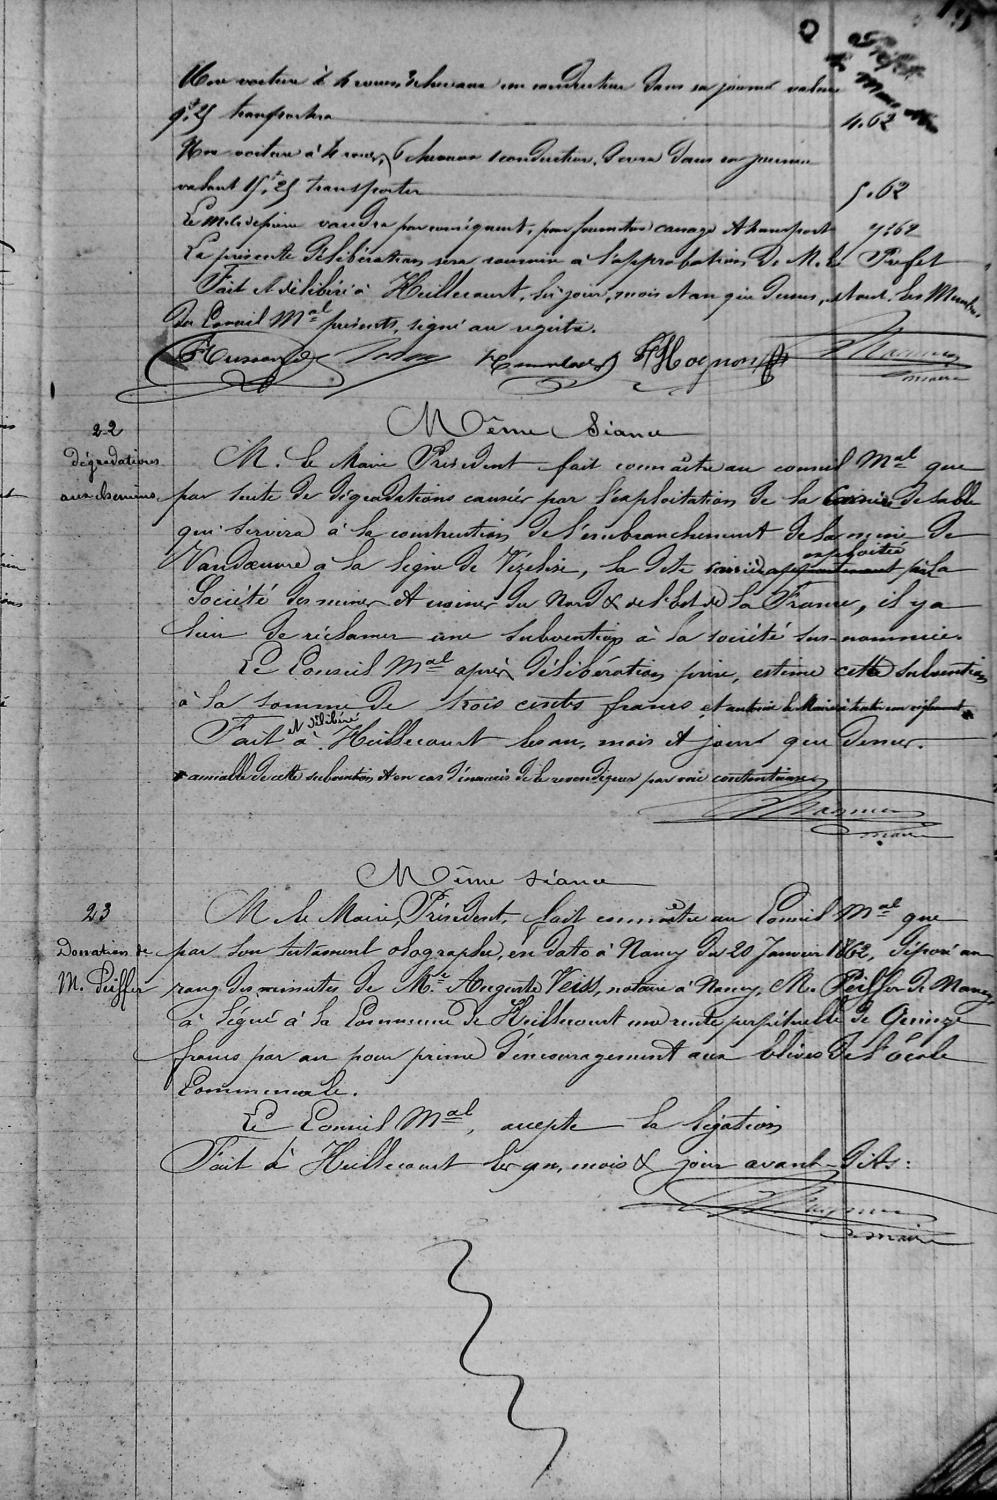 Une voiture à 4 roues, 3 chevaux un conducteur dans sa journée valeur
9f.25 transportera 4.62
Une voiture à 4 roues, 6 chevaux 1 conducteur, devra dans sa journée
valant 15f.25 transporter 5.62
Le m. de pierre vaudra par conséquent, pour fourniture cassage et transport 7f62
La présente délibération sera soumise à l'approbation de M. le Préfet
Fait et délibéré à Heillecourt, les jour, mois et an que dessus, et ont les Membres
du Conseil Mal présents, signé au registre.
Hussenot Hognon Magnien
maire
22
dégradations
aux chemins.
Même Séance
M. le Maire Président fait connaître au conseil Mal que
par suite de dégradations causées par l'exploitation de la Carrière de sable
qui servira à la construction de l'embranchement de la mine de
Vandœuvre à la ligne de Vézelise, la dite carrière appartenant exploitée par la
Société des mines et usines du Nord & de l'Est de la France, il y a
lieu de réclamer une subvention à la société sus-nommée.
Le Conseil Mal après délibération prise, estime cette subvention
à la somme de trois cents francs et autorise le Maire à traiter un règlement
Fait et délibéré à Heillecourt les an, mois et jour que dessus.
amiable de cette subvention et en cas d'insuccès de la revendiquer par voie contentieuse
Magnien
maire
23
Donation de
M. Peiffer
Même séance
M. le Maire, Président, fait connaître au Conseil Mal que
par son testament olographe, en date à Nancy du 20 Janvier 1862, déposé au
rang des minutes de Me Auguste Weiss, notaire à Nancy, M. Peiffer de Nancy
a légué à la Commune de Heillecourt une rente perpétuelle de Quinze
francs par an pour prime d'encouragement aux Elèves de l'école
Communale.
Le Conseil Mal, accepte la légation
Fait à Heillecourt les an, mois & jour avant-dits.
Magnien
maire